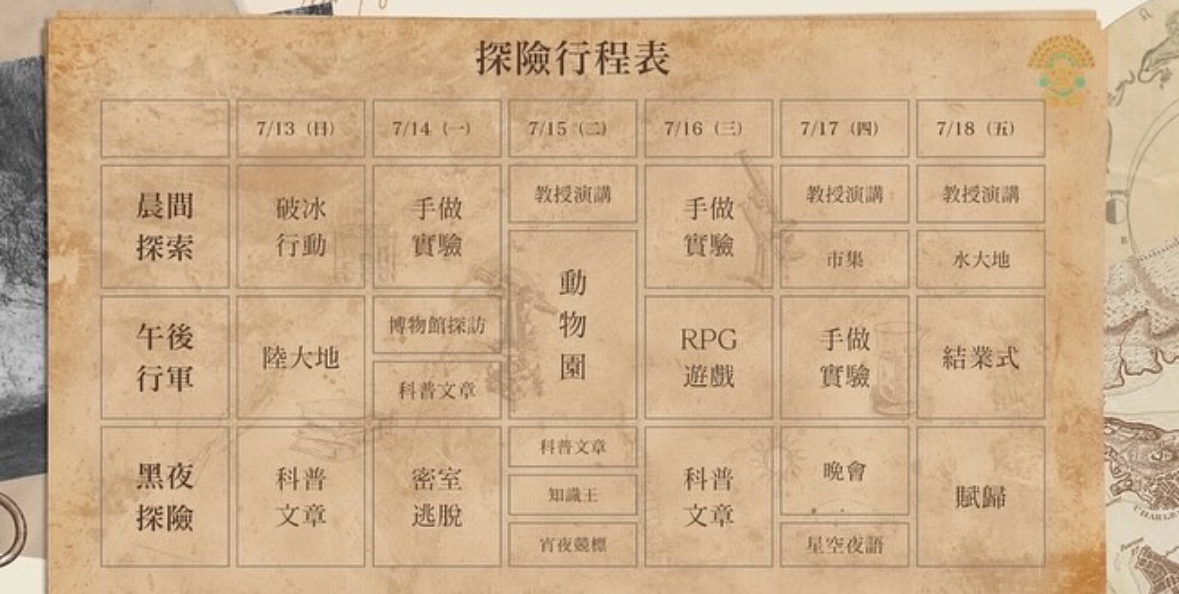 探險行程表
7/13（日） 7/14（一） 7/15（二） 7/16（三） 7/17（四） 7/18（五）
晨間
探索
破冰
行動
手做
實驗
教授演講
手做
實驗
教授演講
市集
教授演講
水大地
動
物
園
午後
行軍
陸大地
博物館探訪
科普文章
RPG
遊戲
手做
實驗
結業式
黑夜
探險
科普
文章
密室
逃脫
科普文章
知識王
宵夜競標
科普
文章
晚會
星空夜語
賦歸